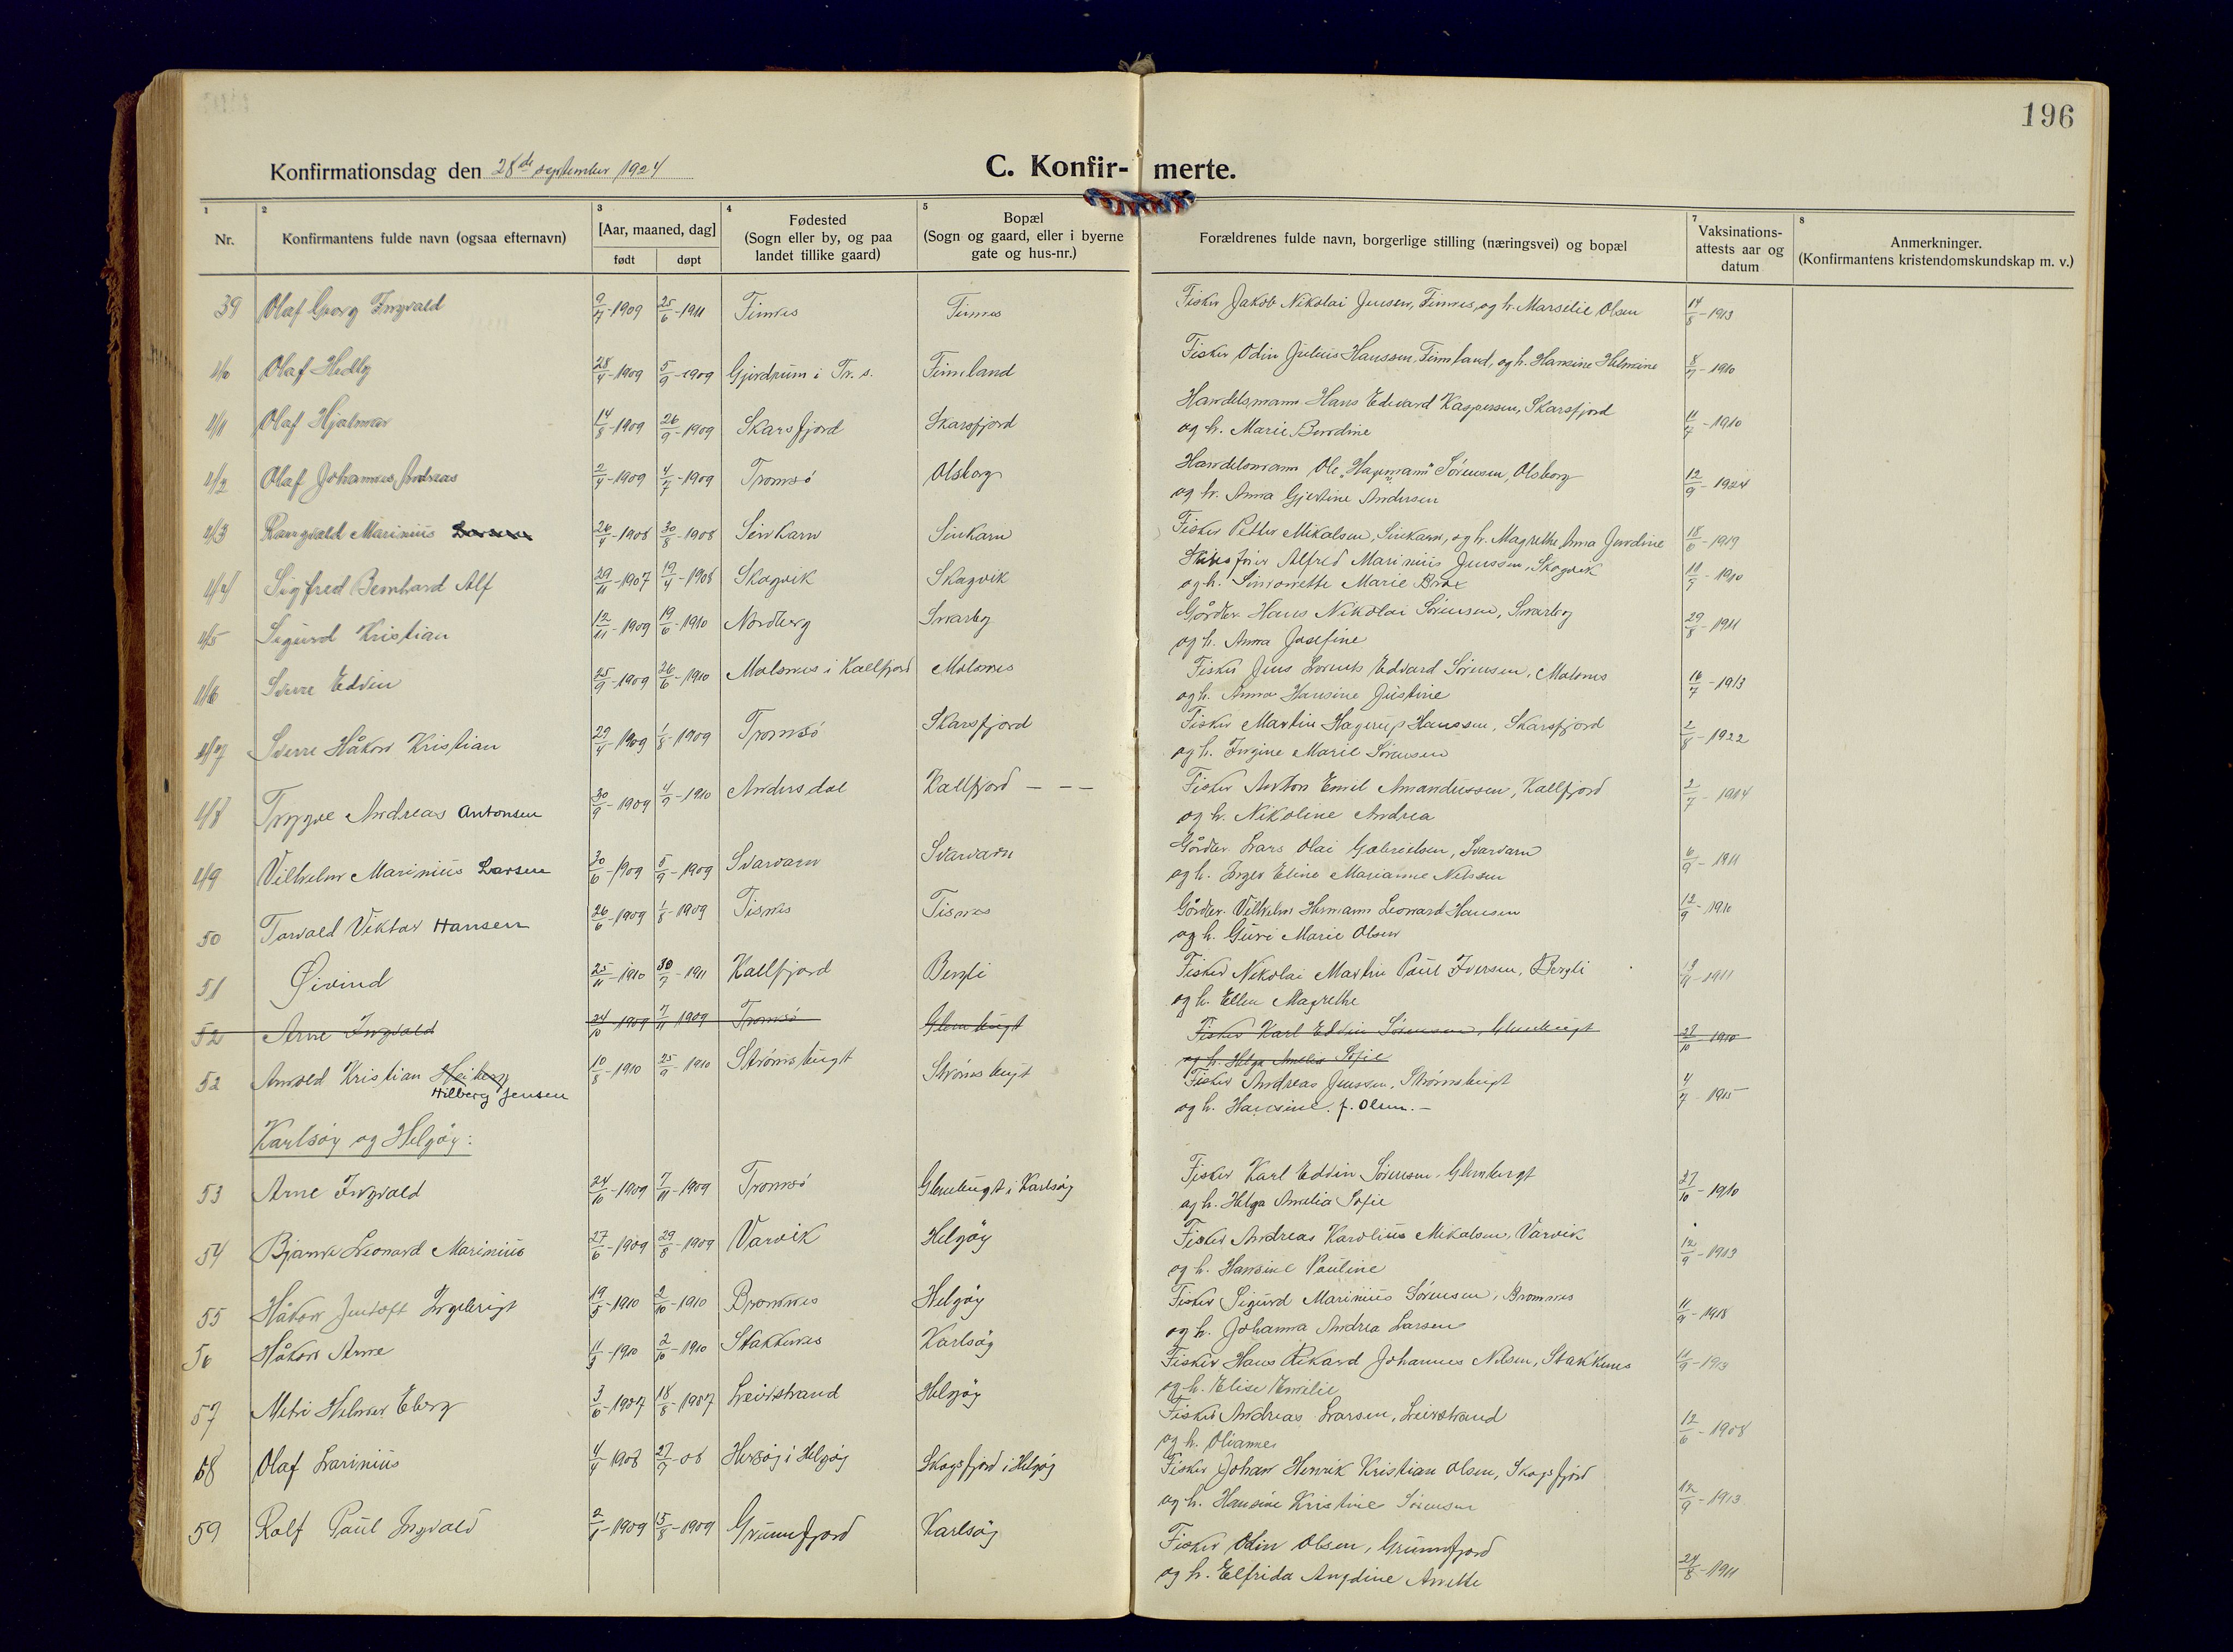 196
Konfirmationsdag den 28de september 1924
C. Konfir- merte.
1 2 3 4 5 7 8
Nr.
Konfirmantens fulde navn (ogsaa efternavn)
[Aar, maaned, dag]
født døpt
Fødested
(Sogn eller by, og paa
landet tillike gaard)
Bopæl
(Sogn og gaard, eller i byerne
gate og hus-nr.)
Forældrenes fulde navn, borgerlige stilling (næringsvei) og bopæl
Vaksinations-
attests aar og
datum
Anmerkninger.
(Konfirmantens kristendomskundskap m. v.)
39 Olaf Georg Ingvald 9/7-1909 25/6-1911 Finnes Finnes Fisker Jakob Nikolai Jensen, Finnes, og h. Marselie Olsen 14/8-1913
40 Olaf Hedly 28/4-1909 5/9-1909 i Tr. s. Finnland Fisker Odin Julius Hanssen, Finnland, og h. Hansine Helmine 8/7-1910
41 Olaf Hjalmar 14/8-1909 26/9-1909 Skarsfjord Skarsfjord Handelsmann Hans Edvard Kaspersen, Skarsfjord 11/7-1910
og h. Marie Berdine
42 Olaf Johannes Andreas 2/4-1909 4/7-1909 Tromsö Olsborg Handelsmann Ole "Hagemann" Sörensen, Olsborg 12/9-1924
og h. Anna Gjertine Andersen
43 Rangvald Marinius 26/4-1908 30/8-1908 Sinkarn Sinkarn Fisker Petter Mikalsen, Sinkarn, og h. Magrethe Anna Jordine 18/6-1919
44 Sigfred Bernhard Alf 29/11-1907 19/4-1908 Skogvik Skogvik Alfred Marinius Jenssen, Skogvik 11/7-1910
og h. Simonette Marie Brox
45 Sigurd Kristian 12/11-1909 19/6-1910 Nordberg Snarby Gårdbr. Hans Nikolai Sörensen, Snarby 29/8-1911
og h. Anna Josefine
46 Sverre Edvin 25/9-1909 26/6-1910 Malsnes i Kallfjord Malsnes Fisker Jens Lorents Edvard Sörensen, Malsnes 16/7-1913
og h. Anna Hansine Justine
47 Sverre Håkon Kristian 29/4-1909 1/8-1909 Tromsö Skarsfjord Fisker Martin Hagerup Hanssen, Skarsfjord 2/8-1922
og h. Ingine Marie Sörensen
48 Trygve Andreas Antonsen 30/9-1909 4/9-1910 Andersdal Kallfjord - - - Fisker Anton Emil Amandussen, Kallfjord 2/7-1914
og h. Nikoline Andrea
49 Vilhelm Marinius Larsen 30/6-1909 5/9-1909 Svarvarn Svarvarn Gårdbr. Lars Olai Gabrielsen, Svarvarn 6/9-1911
og h. Inger Eline Marianne Nilssen
50 Torvald Viktor Hansen 26/6-1909 1/8-1909 Tisnes Tisnes Gårdbr. Vilhelm Hermann Leonard Hansen 12/9-1910
og h. Guri Marie Olsen
51 Øivind 25/11-1910 30/7-1911 Kallfjord Bergli Fisker Nikolai Martin Paul Iversen, Bergli
og h. Ellen Magrethe
52 Arne Ingvald 24/10-1909 7/11-1909 Tromsö Glimbugt Fisker Karl Edvin Sörensen, Glimbugt 27/10-1910
og h. Helga Amalia Sofie
52 Arnold Kristian Heiberg 10/8-1910 25/9-1910 Strömsbugt Strömsbugt Fisker Andreas Jenssen, Strömsbugt 4/7-1915
Hilberg Jensen og h. Hansine. f. Olsen. -
Karlsöy og Helgöy:
53 Arne Ingvald 24/10-1909 7/11-1909 Tromsö Glimbugt i Karlsöy Fisker Karl Edvin Sörensen, Glimbugt 27/10-1910
og h. Helga Amalia Sofie
54 Bjarne Leonard Marinius 27/6-1909 29/8-1909 Varvik Helgöy Fisker Andreas Karolius Mikalsen, Varvik 12/9-1913
og h. Hansine Pauline
55 Håkon Jentoft Ingebrigt 19/5-1910 2/10-1910 Bromnes Helgöy Fisker Sigurd Marinius Sörensen, Bromnes 11/9-1918
og h. Johanna Andrea Larsen
56 Håkon Arne 11/3-1910 2/10-1910 Stakknes Karlsöy Fisker Hans Rikard Johannes Nilsen, Stakknes 11/9-1913
og h. Elise Emilie
57 Metri Helmer Eberg 3/6-1907 18/8-1907 Leirstrand Helgöy Fisker Andreas Larsen, Leirstrand 12/6-1908
og h. Olianna
58 Olaf Larinius 4/4-1908 27/9-08 i Helgöy Skogsfjord i Helgöy Fisker Johan Henrik Kristian Olsen, Skogsfjord 12/9-1913
og h. Hansine Kristine Sörensen
59 Rolf Paul Ingvald 2/1-1909 15/8-1909 Grunnfjord Karlsöy Fisker Odin Olsen, Grunnfjord 24/8-1911
og h. Elfrida Angdine Anette